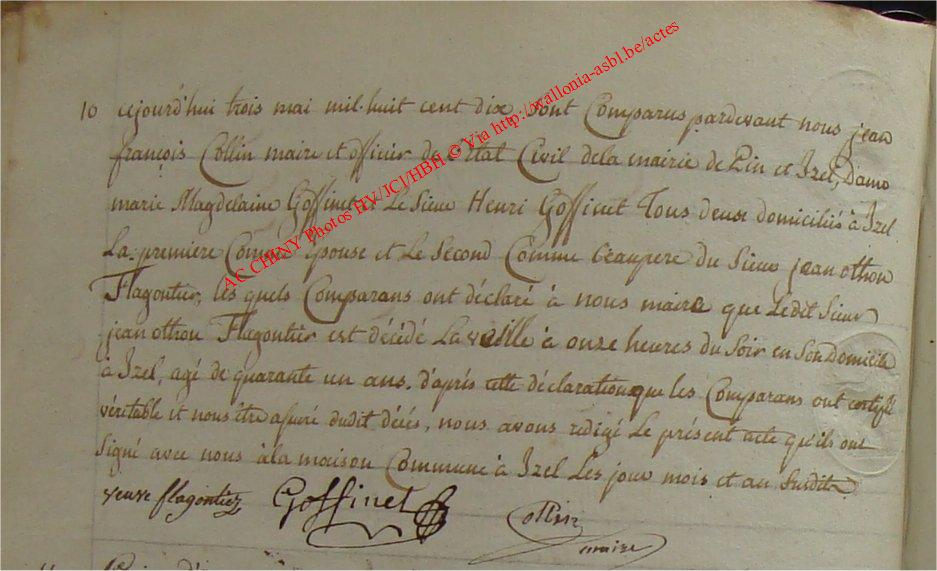 10 cejourd'hui trois mai mil-huit cent dix. sont Comparus pardevant nous jean
françois Collin maire et officier de l'Etat Civil dela mairie de Pin et Izel, Dame
marie Magdelaine Goffinet et Le Sieur Henri Goffinet Tous deux domiciliés à Izel
La premiere Comme épouse et Le Second Comme beaupere du Sieur jean othon
Flagontier, les quels Comparans ont déclaré à nous maire que Ledit Sieur
jean othon Flagontier est décédé La veille à onze heures du Soir en Son Domicile
à Izel, agé de quarante un ans. d'après cette déclaration que les Comparans ont certifié
véritable et nous être assuré dudit décés, nous avons redigé Le présent acte qu'ils ont
Signé avec nous à la maison Commune à Izel Les jour mois et an Susdits
veuve flagontier Goffinet Collin
maire
AC CHINY Photos HV/JCJ/HBH © Via http://wallonia-asbl.be/actes